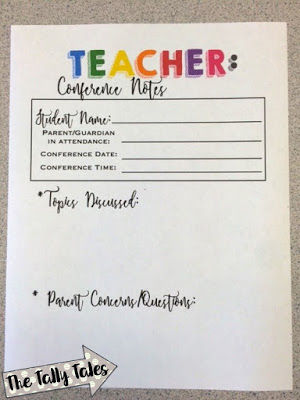 TEACHER:
Conference Notes
Student Name:
PARENT/GUARDIAN
IN ATTENDANCE:
CONFERENCE DATE:
CONFERENCE TIME:
*Topics Discussed:
* Parent Concerns/Questions:
The Tally Tales